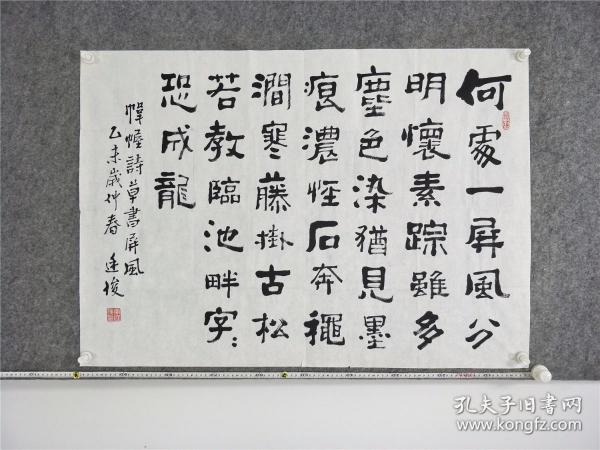 何處一屏風分
明懷素踪雖多
塵色染猶見墨
痕濃怪石奔穐
澗寒藤掛古松
若教臨池畔字〻
恐成龍
幃幄詩草書屏風
乙未歲仲春 俊
孔夫子旧书网
www.kongfz.com